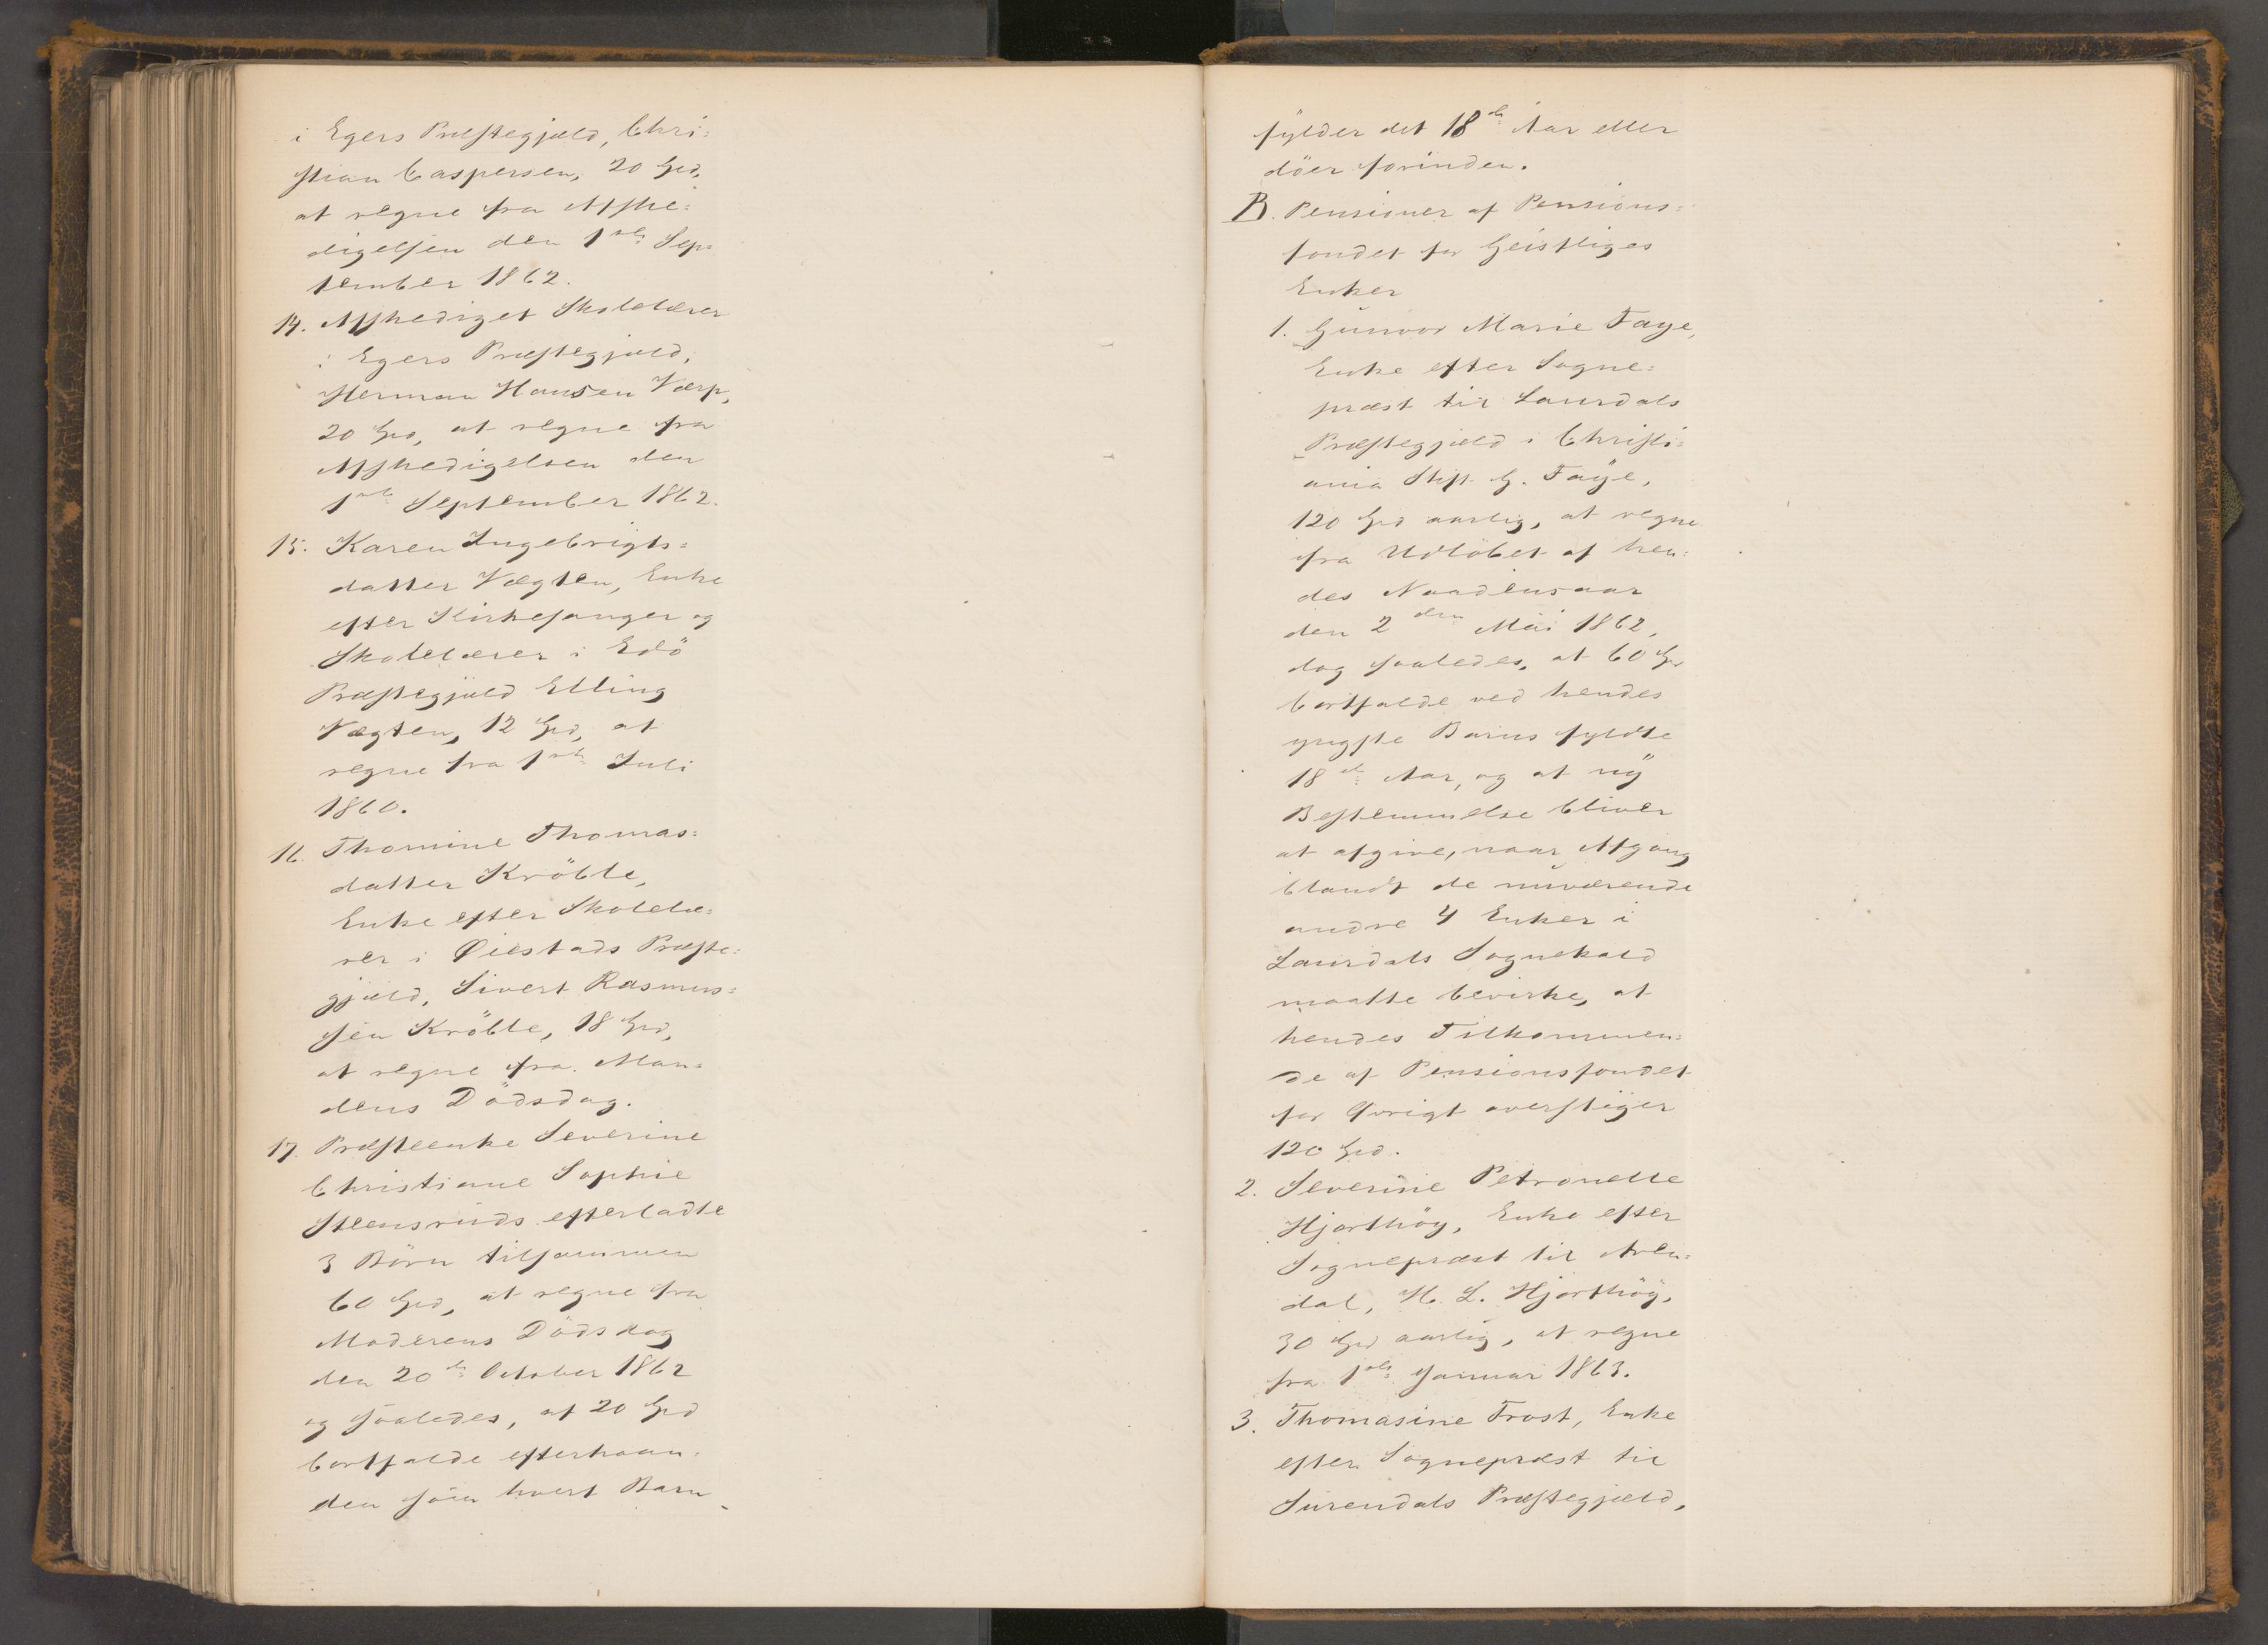 i Egers Præstegjæld, Chri=
stian Caspersen, 20 Spd,
at regne fra Afske=
digelsen den 1ste Sep=
tember 1862.
14. Afskediget Skolelærer
i Egers Præstegjæld,
Herman Hansen Værp,
20 Spd, at regne fra
Afskedigelsen den
1ste September 1862.
15. Karen Ingebrigts=
datter Vægten, Enke
efter Kirkesanger og
Skolelærer i Edö
Præstegjæld Elling
Vægten, 12 Spd, at
regne fra 1ste Juli
1860.
16. Thomine Thomas=
datter Kröble,
Enke efter Skolelæ=
rer i Øiestads Præste=
gjæld, Sivert Rasmus=
sen Kröble, 18 Spd,
at regne fra Man=
dens Dödsdag.
17. Præsteenke Severine
Christiane Sophie
Steensruds efterladte
3 Börn tilsammen
60 Spd, at regne fra
Moderens Dödsdag
den 20de October 1862
og saaledes, at 20 Spd
bortfalde efterhaan=
den som hvert Barn
fylder det 18de Aar eller
döer forinden.
B. Pensioner af Pensions=
fondet for Geistliges
Enker
1. Gunvor Marie Faye,
Enke efter Sogne=
præst til Laurdals
Præstegjæld i Christi=
ania Stift G. Faye,
120 Spd aarlig, at regne
fra Udlöbet af hen=
des Naadensaar
den 2den Mai 1862,
dog saaledes, at 60 Spd
bortfalde ved hendes
yngste Barns fyldte
18de Aar, og at ny
Bestemmelse bliver
at afgive, naar Afgang
blandt de nuværende
andre 4 Enker i
Laurdals Sognekald
maatte bevirke, at
hendes Tilkommen=
de af Pensionsfondet
for Øvrigt overstiger
120 Spd.
2. Severine Petronelle
Hjorthöy, Enke efter
Sognepræst til Aren=
dal, H. L. Hjorthöy,
30 Spd aarlig, at regne
fra 1ste Januar 1863.
3. Thomasine Frost, Enke
efter Sognepræst til
Surendals Præstegjæld,